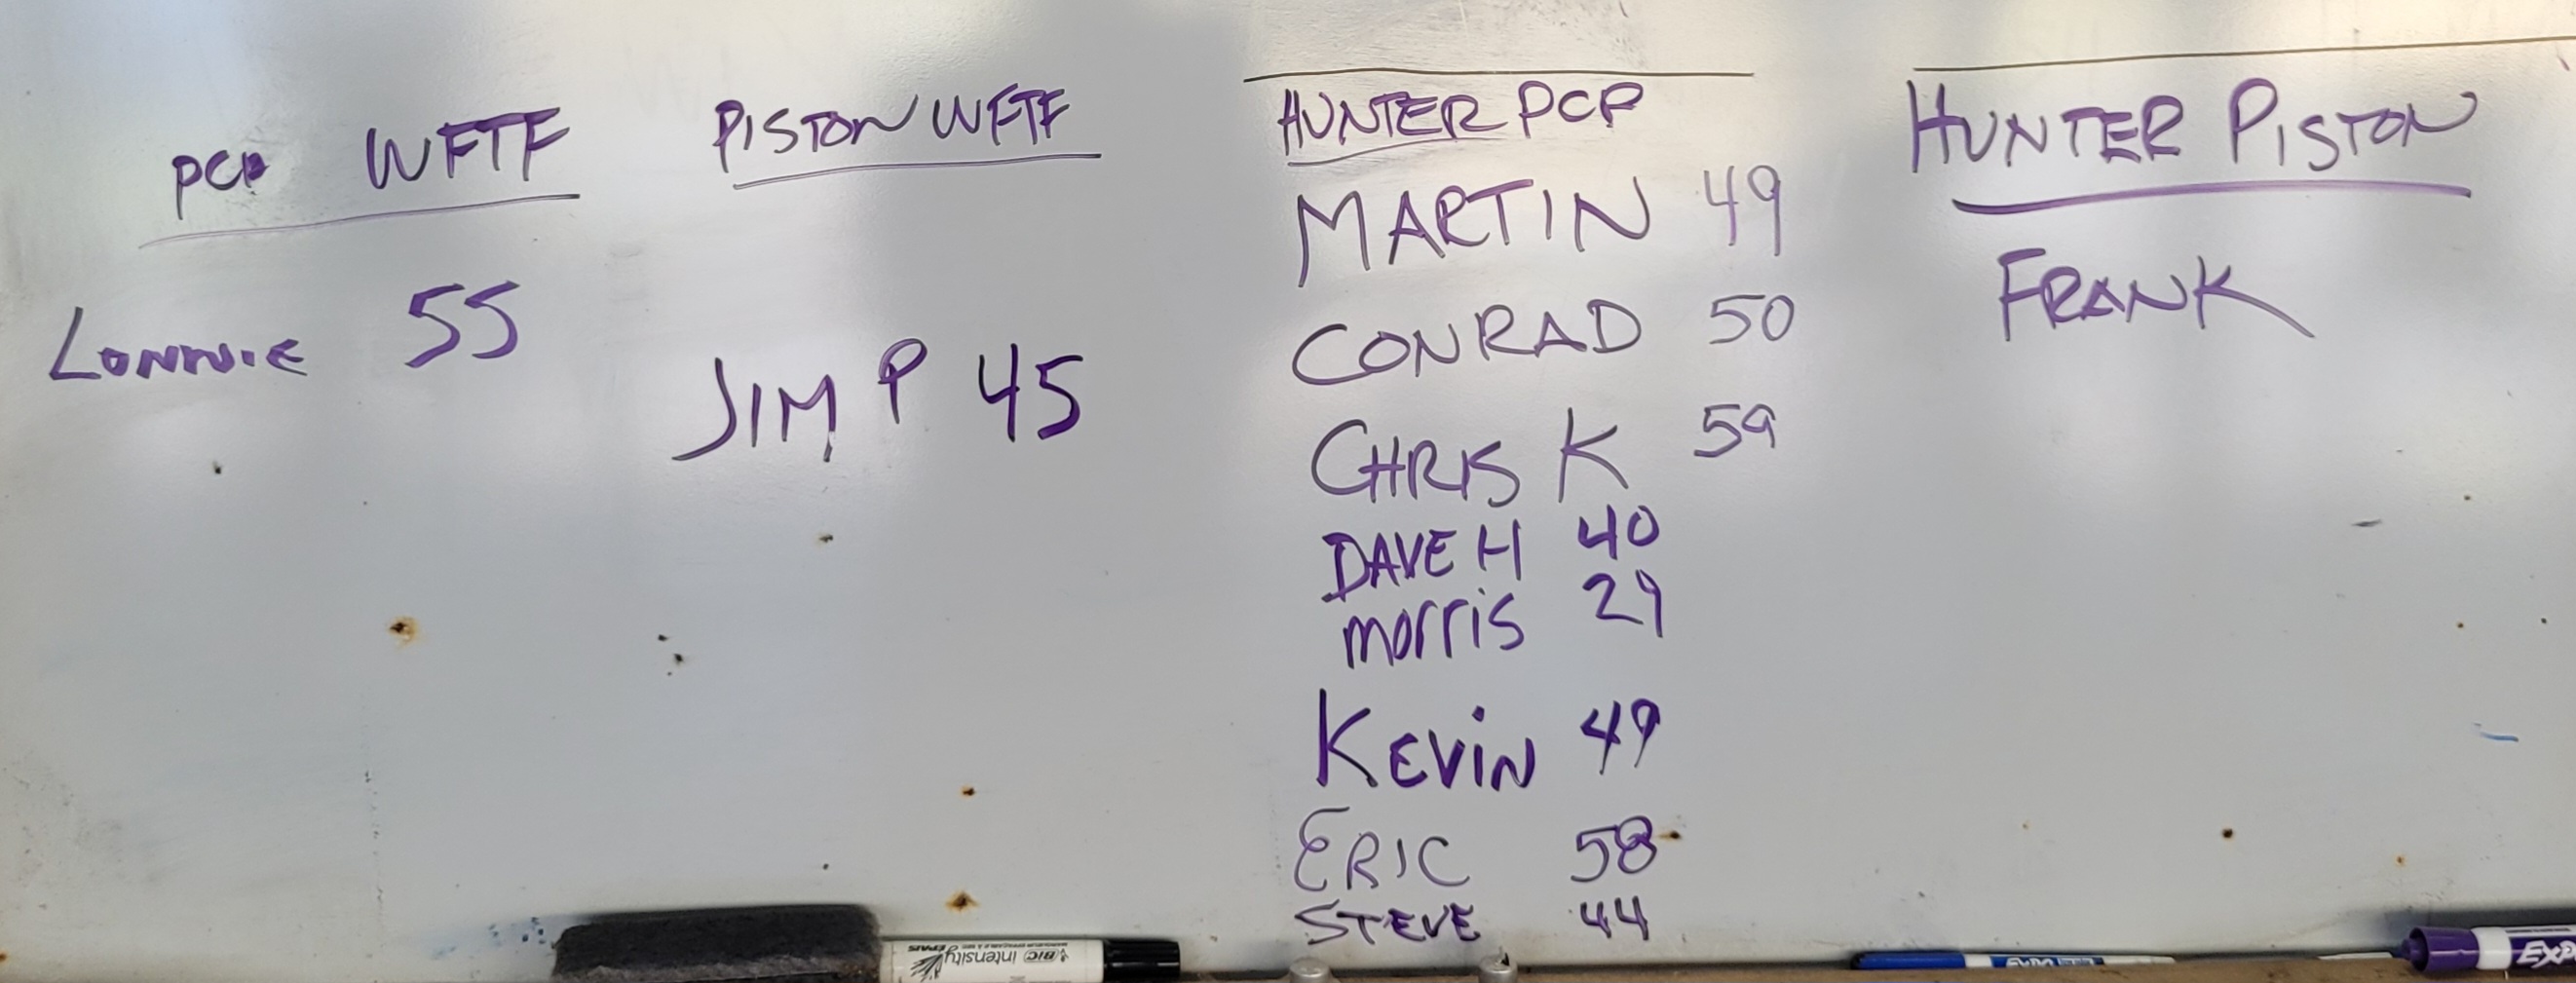 PCP WFTF
Lonnie 55
PISTON WFTF
JIM P 45
HUNTER PCP
MARTIN 49
CONRAD 50
CHRIS K 59
DAVE H 40
morris 29
KEViN 49
ERIC 58
STEVE 44
HUNTER PISTON
FRANK
BIC intensity
EPAIS
EXP